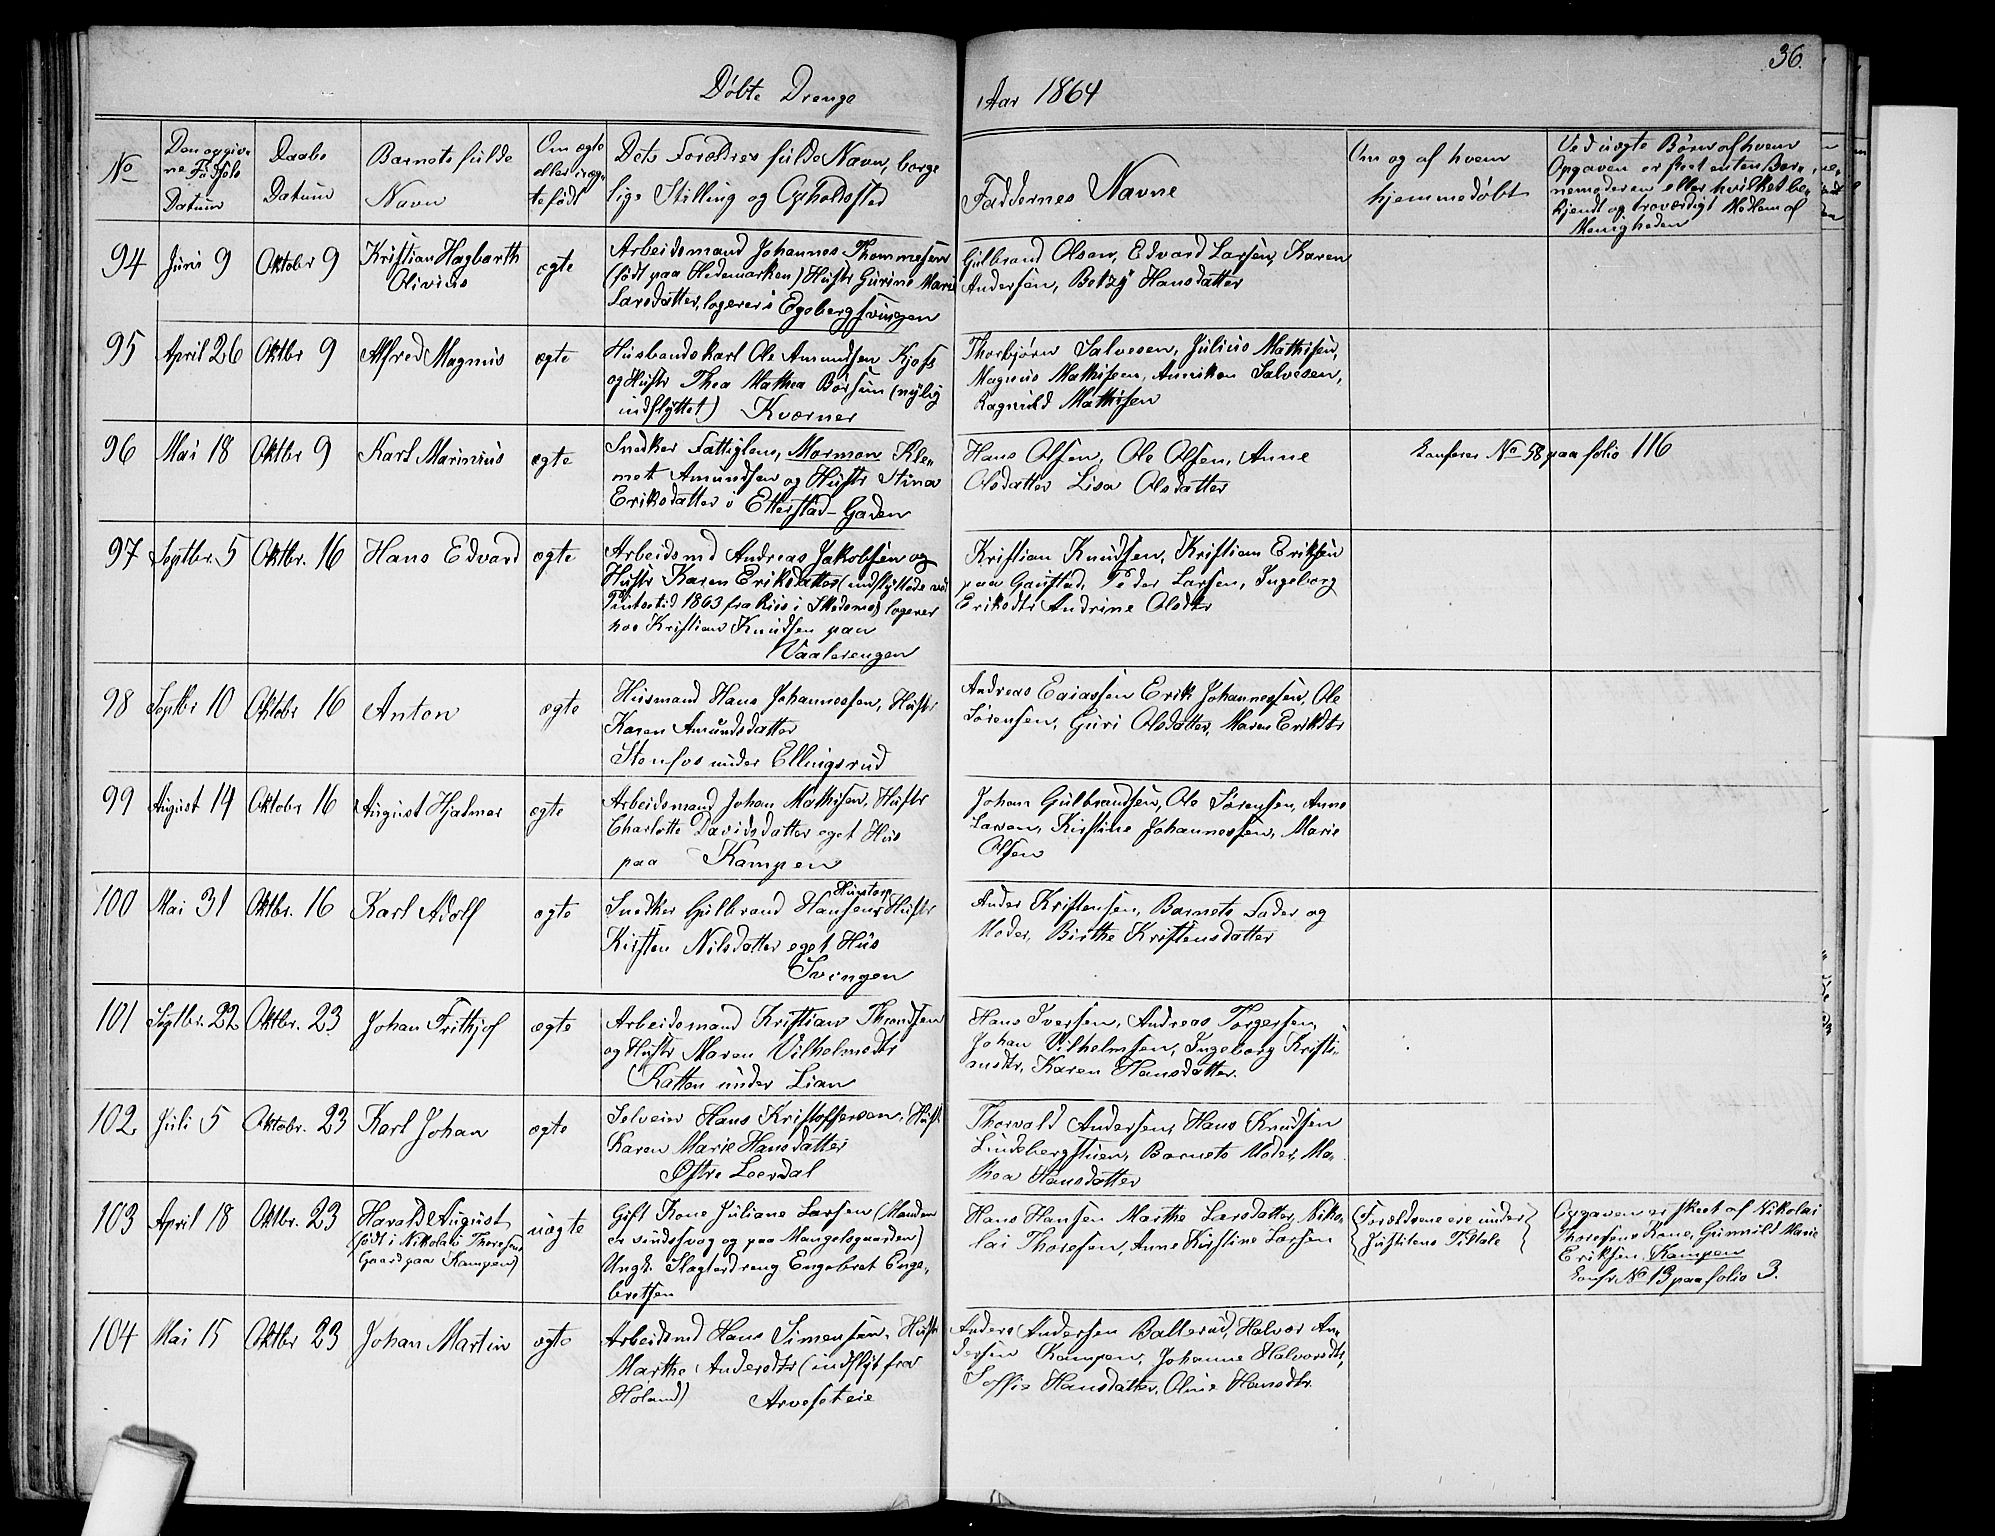 36.
Døbte Drenge
Aar 1864
No
Den opgivne Fødsels Datum
Daabs Datum
Barnets fulde Navn
Om ægte eller uægte født
Dets Forældres fulde Navn, borgelige Stilling og Opholdssted
Faddernes Navne
Om og af hvem hjemmedøbt
Ved uægte Børn af hvem Opgaven er skeet enten Barnemoderen eller hvilket bekjendt og troværdigt Medlem af Menigheden
94 Juni 9 Oktober 9 Kristian Hagbarth Olivius ægte
Arbeidsmand Johannes Thommesen
(født paa Hedemarken) Hustr Gurine Marie
Larsdatter, logerer i Egebergsvingen
Gulbrand Olsen, Edvard Larsen, Karen
Andersen, Betzy Hansdatter
95 April 26 Oktbr 9 Alfred Magnus ægte
Husbondskarl Ole Amundsen Kjos
og Hustr Thea Mathea Børsum (nylig
indflyttet) Kværner
Thorbjørn Salvesen, Julius Mathisen,
Magnus Mathisen, Anniken Salvesen,
Ragnild Mathisen
96 Mai 18 Oktbr 9 Karl Marinius ægte
Snedker Fattiglem, Mormon Kle-
met Amundsen og Hustr Stina
Eriksdatter i Etterstad-Gaden
Hans Olsen, Ole Olsen, Anne
Olsdatter Lisa Olsdatter
Konferer No 58 paa folio 116
97 Septbr. 5 Oktbr. 16 Hans Edvard ægte
Arbeidsmd Andreas Jakobsen og
Hustr Karen Eriksdatter (indflyttede ved
Pintsetid 1863 fra Riis i Skedsmo) logerer
hos Kristian Knudsen paa
Vaalerengen
Kristian Knudsen, Kristian Eriksen
paa Gaustad, Peder Larsen, Ingeborg
Eriksdtr Andrine Olsdtr
98 Septbr 10 Oktobr 16 Anton ægte
Husmand Hans Johannessen, Hustr
Karen Amundsdatter
Stenfos under Ellingsrud
Andreas Eaiassen Erik Johannessen, Ole
Sørensen, Guri Olsdatter, Maren Eriksdtr
99 August 14 Oktobr 16 August Hjalmar ægte
Arbeidsmand Johan Mathisen, Hustr
Charlotte Davidsdatter eget Hus
paa Kampen
Johan Gulbrandsen, Ole Sørensen, Anne
Larsen, Kirstine Johannessen, Marie
Olsen
100 Mai 31 Oktbr. 16 Karl Adolf ægte
Snedker Gulbrand Hansen, Hustr
Kirsten Nilsdatter eget Hus
Svingen
Ander Kristensen, Barnets Fader og
Moder, Birthe Kristensdatter
101 Septbr. 22 Oktbr. 23 Johan Frithjof ægte
Arbeidsmand Kristian Throndsen
og Hustr Maren Vilhelmsdtr
Katten under Lian
Hans Iversen, Andreas Torgersen,
Johan Vilhelmsen, Ingeborg Kristi-
ansdtr, Karen Hansdatter.
102. Juli 5 Oktobr. 23 Karl Johan ægte
Selveier Hans Kristoffersen, Hustr
Karen Marie Hansdatter
Østre Leerdal
Thorvald Andersen, Hans Knudsen
Lindebergstuen, Barnets Moder, Ma-
thea Hansdatter
103 April 18 Oktbr. 23 Harald August
(født i Nikolai Thoresens
Gaard paa Kampen) uægte
Gift Kone Juliane Larsen (Manden
er sindssvag og paa Mangelsgaarden)
Ungk. Slagterdreng Engebret Enge-
bretsen
Hans Hansen Marthe Larsdatter, Niko-
lai Thoresen, Anne Kirstine Larsen
{Forældrene ere under
Justitens Tiltale}
Opgaven er skeet af Nikolai
Thoresens Kone, Gunnild Marie
Eriksen. Kampen
Konfr No 13 paa folio 3.
104 Mai 15 Oktbr 23 Johan Martin ægte
Arbeidsmd Hans Simensen, Hustr
Marthe Andersdtr (indflyt fra
Høland) Arveseteie
Anders Andersen Ballerud, Halvor An-
dersen Kampen, Johanne Halvorsdtr,
Soffie Hansdatter, Oline Hansdtr.